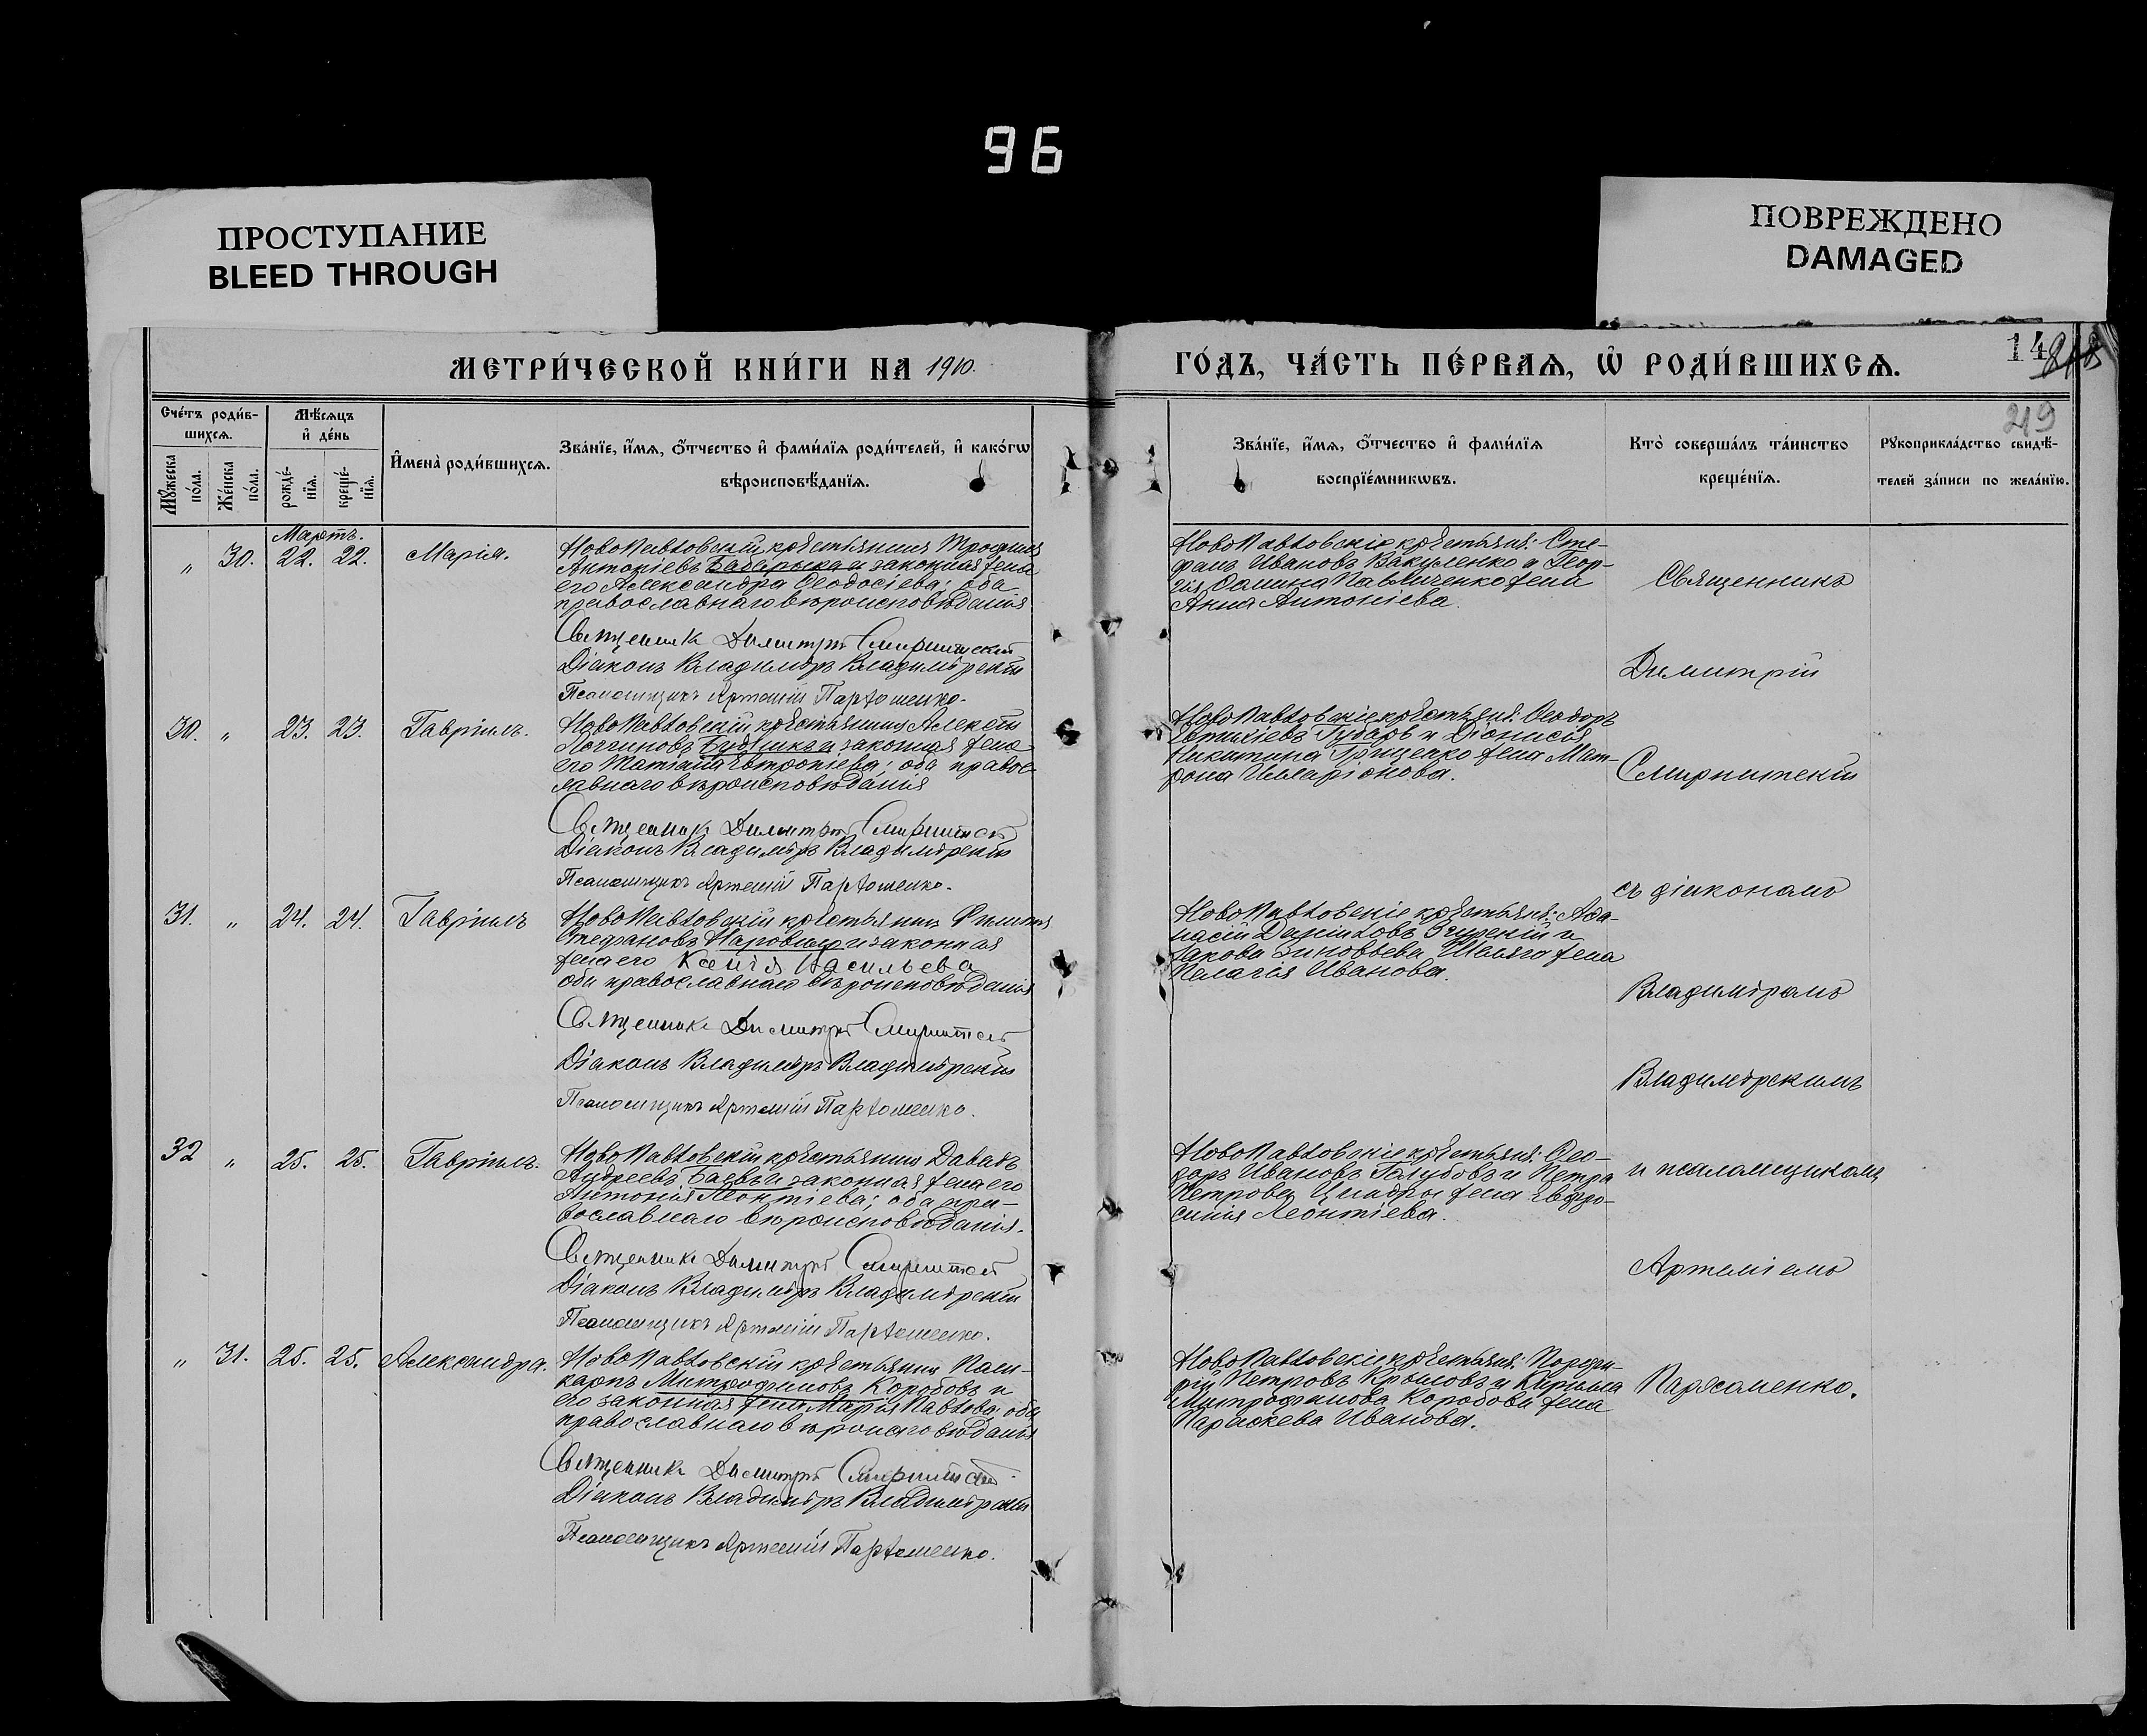 96
ПРОСТУПАНИЕ
BLEED THROUGH
ПОВРЕЖДЕНО
DAMAGED
МЕТРИ́ЧЕСКОЙ КНИ́ГИ НА 1910.
ГО́ДЪ, ЧА́СТЬ ПЕ́РВАѦ, Ѡ҆ РОДИ́ВШИХСѦ.
14
219
Сче́тъ роди́в-
шихсѧ.
Мѣ́сѧцъ
и҆ де́нь
Мꙋ́жеска
по́ла.
Же́нска
по́ла.
рожде́-
нїѧ.
креще́-
нїѧ.
И҆мена̀ роди́вшихсѧ.
Зва́нїе, и҆́мѧ, ѻ҆́тчество и҆ фами́лїѧ роди́телей, и҆ како́гѡ
вѣроисповѣ́данїѧ.
Зва́нїе, и҆́мѧ, ѻ҆́тчество и҆ фами́лїѧ
воспрїе́мникѡвъ.
Кто̀ соверша́лъ та́инство
креще́нїѧ.
Рꙋкоприкла́дство свидѣ́-
телей за́писи по жела́нїю.
Мартъ.
„ 30. 22. 22. Марія.
НовоПавловскій крестьянинъ Трофимъ
Антоніевъ и законная жена
его Александра Ѳеодосіева; оба
православнаго вѣроисповѣданія
Священникъ Димитрій Смирнитскій
Діаконъ Владиміръ Владимірскій
Псаломщикъ Артемій Пархоменко.
НовоПавловскіе крестьяне: Сте-
фанъ Ивановъ Вакуленко и Геор-
гія Павличенко жена
Анна Антоніева.
30. „ 23. 23. Гавріилъ.
НовоПавловскій крестьянинъ Алексѣй
Логгиновъ и законная жена
его Евтропіева; оба правос-
лавнаго вѣроисповѣданія
Священникъ Димитрій Смирнитскій
Діаконъ Владиміръ Владимірскій
Псаломщикъ Артемій Пархоменко.
НовоПавловскіе крестьяне: Ѳеодоръ
Евтихіевъ Губарь и Діонисія
Никитина Гриценко жена Мат-
рона Илларіонова.
31. „ 24. 24. Гавріилъ
НовоПавловскій крестьянинъ Филиппъ
Стефановъ и законная
жена его Ксенія Васильева
оба православнаго вѣроисповѣданія
Священникъ Димитрій Смирнитскій
Діаконъ Владиміръ Владимірскій
Псаломщикъ Артемій Пархоменко.
НовоПавловскіе крестьяне: Аѳа-
насій Даніиловъ и
Іакова Зиновьева жена
Пелагія Иванова.
32 „ 25. 25. Гавріилъ.
НовоПавловскій крестьянинъ Давидъ
Андреевъ Баевъ и законная жена его
Антонія Леонтіева; оба пра-
вославнаго вѣроисповѣданія.
Священникъ Димитрій Смирнитскій
Діаконъ Владиміръ Владимірскій
Псаломщикъ Артемій Пархоменко.
НовоПавловскіе крестьяне: Ѳео-
доръ Ивановъ Голубовъ и Петра
Петрова жена Евдро-
синія Леонтіева.
„ 31. 25. 25. Александра.
НовоПавловскій крестьянинъ Поли-
карпъ Митрофановъ Коробовъ и
его законная жена Марія Павлова; оба
православнаго вѣроисповѣданія
Священникъ Димитрій Смирнитскій
Діаконъ Владиміръ Владимірскій
Псаломщикъ Артемій Пархоменко.
НовоПавловскіе крестьяне: Порфи-
рій Петровъ и Кирилла
Митрофанова Коробова жена
Параскева Иванова.
Священникъ
Димитрій
Смирнитскій
съ діакономъ
Владиміромъ
Владимірскимъ
и псаломщикомъ
Артеміемъ
Пархоменко.